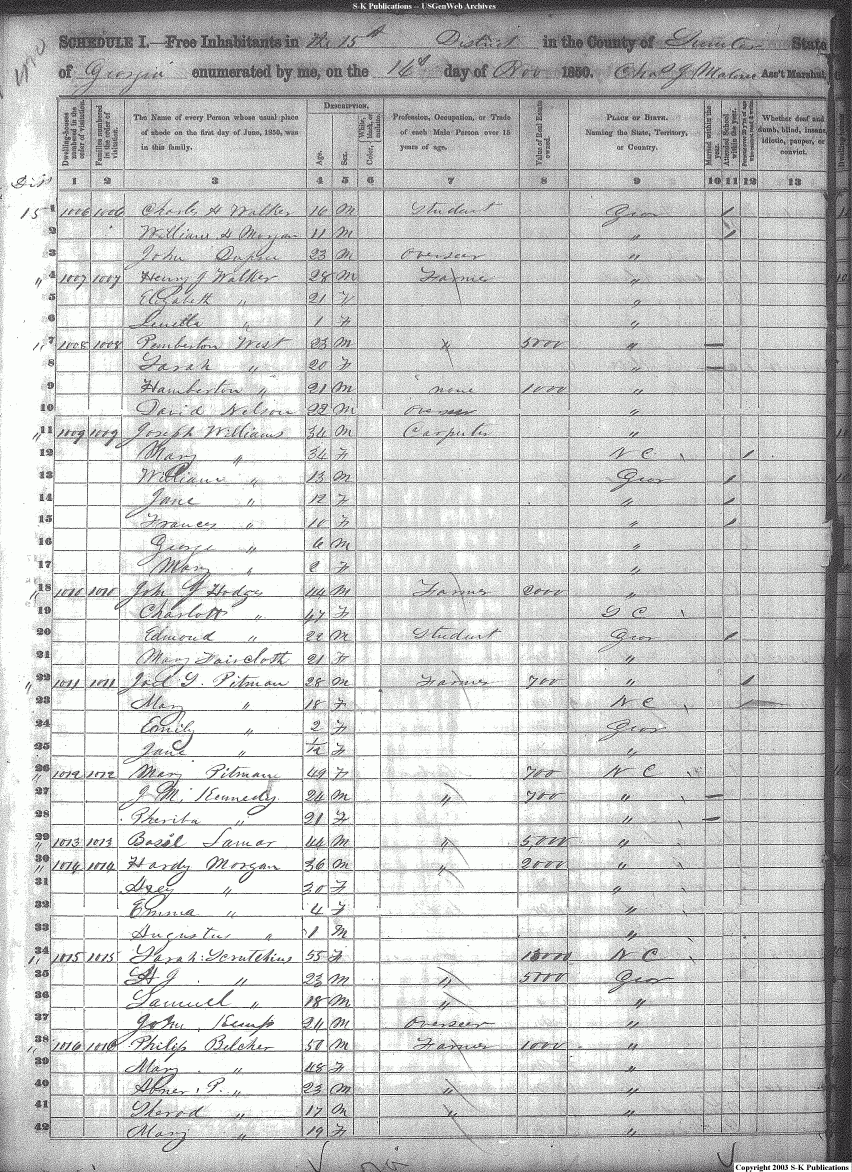 S-K Publications -- USGenWeb Archives
SCHEDULE I.—Free Inhabitants in the 15th District in the County of Sumter State
of Georgia enumerated by me, on the 16th day of Nov 1850. Chas J Ass't Marshal.
Dwelling-houses numbered in the order of visitation. Families numbered in the order of visitation. The Name of every Person whose usual place of abode on the first day of June, 1850, was in this family. Description. Age. Sex. White, black, or mulatto. Color, Profession, Occupation, or Trade of each Male Person over 15 years of age. Value of Real Estate owned. Place of Birth. Naming the State, Territory, or Country. Married within the year. Attended School within the year. Whether deaf and dumb, blind, insane, idiotic, pauper, or convict.
1 2 3 4 5 6 7 8 9 10 11 12 13
Dis
15 1 1006 1006 Charles H Walker 16 M Student Geor /
2 William H Morgan 11 M " /
3 John 23 M Overseer "
" 4 1007 1007 Henry J Walker 28 M Farmer "
5 Elizabeth " 21 F "
6 " 1 F "
" 7 1008 1008 Pemberton West 23 M " 5000 " —
8 Sarah " 20 F " —
9 Hamberton " 21 M none 1000 "
10 David Nelson 22 M Overseer "
" 11 1009 1009 Joseph Williams 34 M Carpenter "
12 Mary " 34 F N C /
13 William " 13 M Geor /
14 Jane " 12 F " /
15 Frances " 10 F " /
16 George " 6 M "
17 Mary " 2 F "
" 18 1010 1010 Joh J Hodges 44 M Farmer 2000 "
19 Charlott " 47 F S C
20 Edmond " 22 M Student Geor /
21 Mary Faircloth 21 F "
" 22 1011 1011 Joel Pitman 28 M Farmer 700 " /
23 Mary " 18 F N C
24 Emily " 2 F Geor
25 Jane " 1/12 F "
" 26 1012 1012 Mary Pitman 49 F 700 N C
27 J M Kennedy 24 M " 700 " —
28 " 21 F " —
" 29 1013 1013 Basil Lamar 44 M " 5,000 "
" 30 1014 1014 Hardy Morgan 36 M " 2000 "
31 " 30 F "
32 Emma " 4 F "
33 Augustus " 1 M "
" 34 1015 1015 Sarah Scrutchins 55 F N C
35 " 23 M " 5000 Geor
36 Samuel " 18 M " "
37 John Kemp 24 M Overseer "
" 38 1016 1016 Philip Belcher 51 M Farmer 1000 "
39 Mary " 48 F "
40 Abner P. " 23 M " "
41 Sherod " 17 M " "
42 Mary " 19 F "
Copyright 2003 S-K Publications